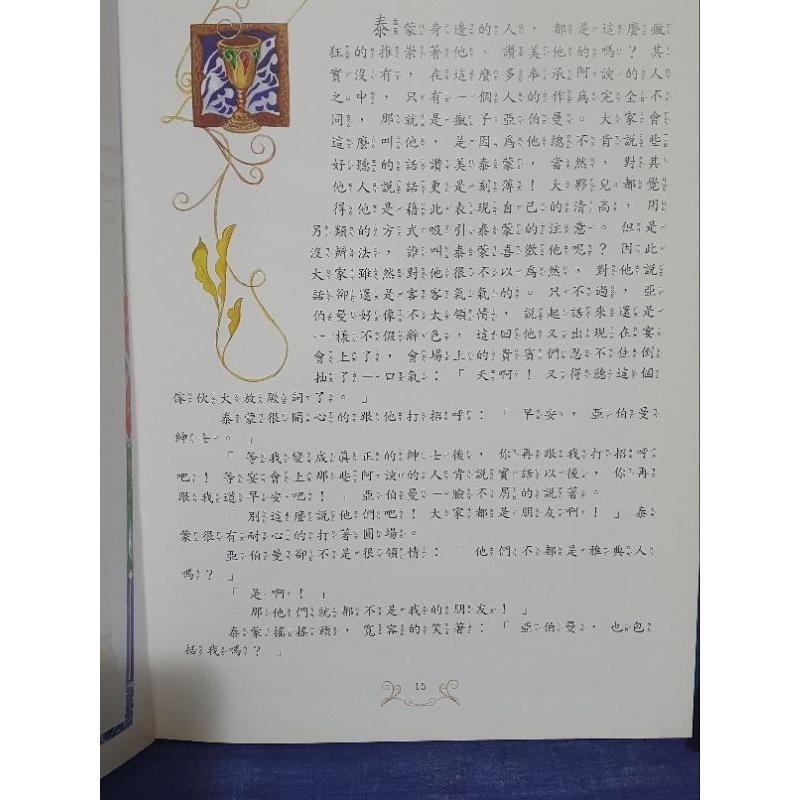 泰蒙身邊的人，都是這麼瘋
狂的推崇著他、讚美他的嗎？其
實沒有，在這麼多奉承阿諛的人
之中，只有一個人的作為完全不
同，那就是瘋子亞伯曼。大家會
這麼叫他，是因為他總不肯說些
好聽的話讚美泰蒙，當然，對其
他人說話更是刻薄！大夥兒都覺
得他是藉此表現自己的清高，用
另類的方式吸引泰蒙的注意。但是
沒辦法，誰叫泰蒙喜歡他呢？因此
大家雖然對他很不以為然，對他說
話卻還是客客氣氣的。只不過，亞
伯曼好像不太領情，說起話來還是
一樣不假辭色，這回他又出現在宴
會上了，會場上的貴賓們忍不住倒
抽了一口氣：「天啊！又得聽這個
傢伙大放厥詞了。」
泰蒙很開心的跟他打招呼：「早安，亞伯曼
紳士。」
「等我變成真正的紳士後，你再跟我打招呼
吧！等宴會上那些阿諛的人肯說實話以後，你再
跟我道早安吧！」亞伯曼一臉不屑的說著。
「別這麼說他們吧！大家都是朋友啊！」泰
蒙很有耐心的打著圓場。
亞伯曼卻不是很領情：「他們不都是雅典人
嗎？」
「是啊！」
「那他們就都不是我的朋友！」
泰蒙搖搖頭，寬容的笑著：「亞伯曼，也包
括我嗎？」
15